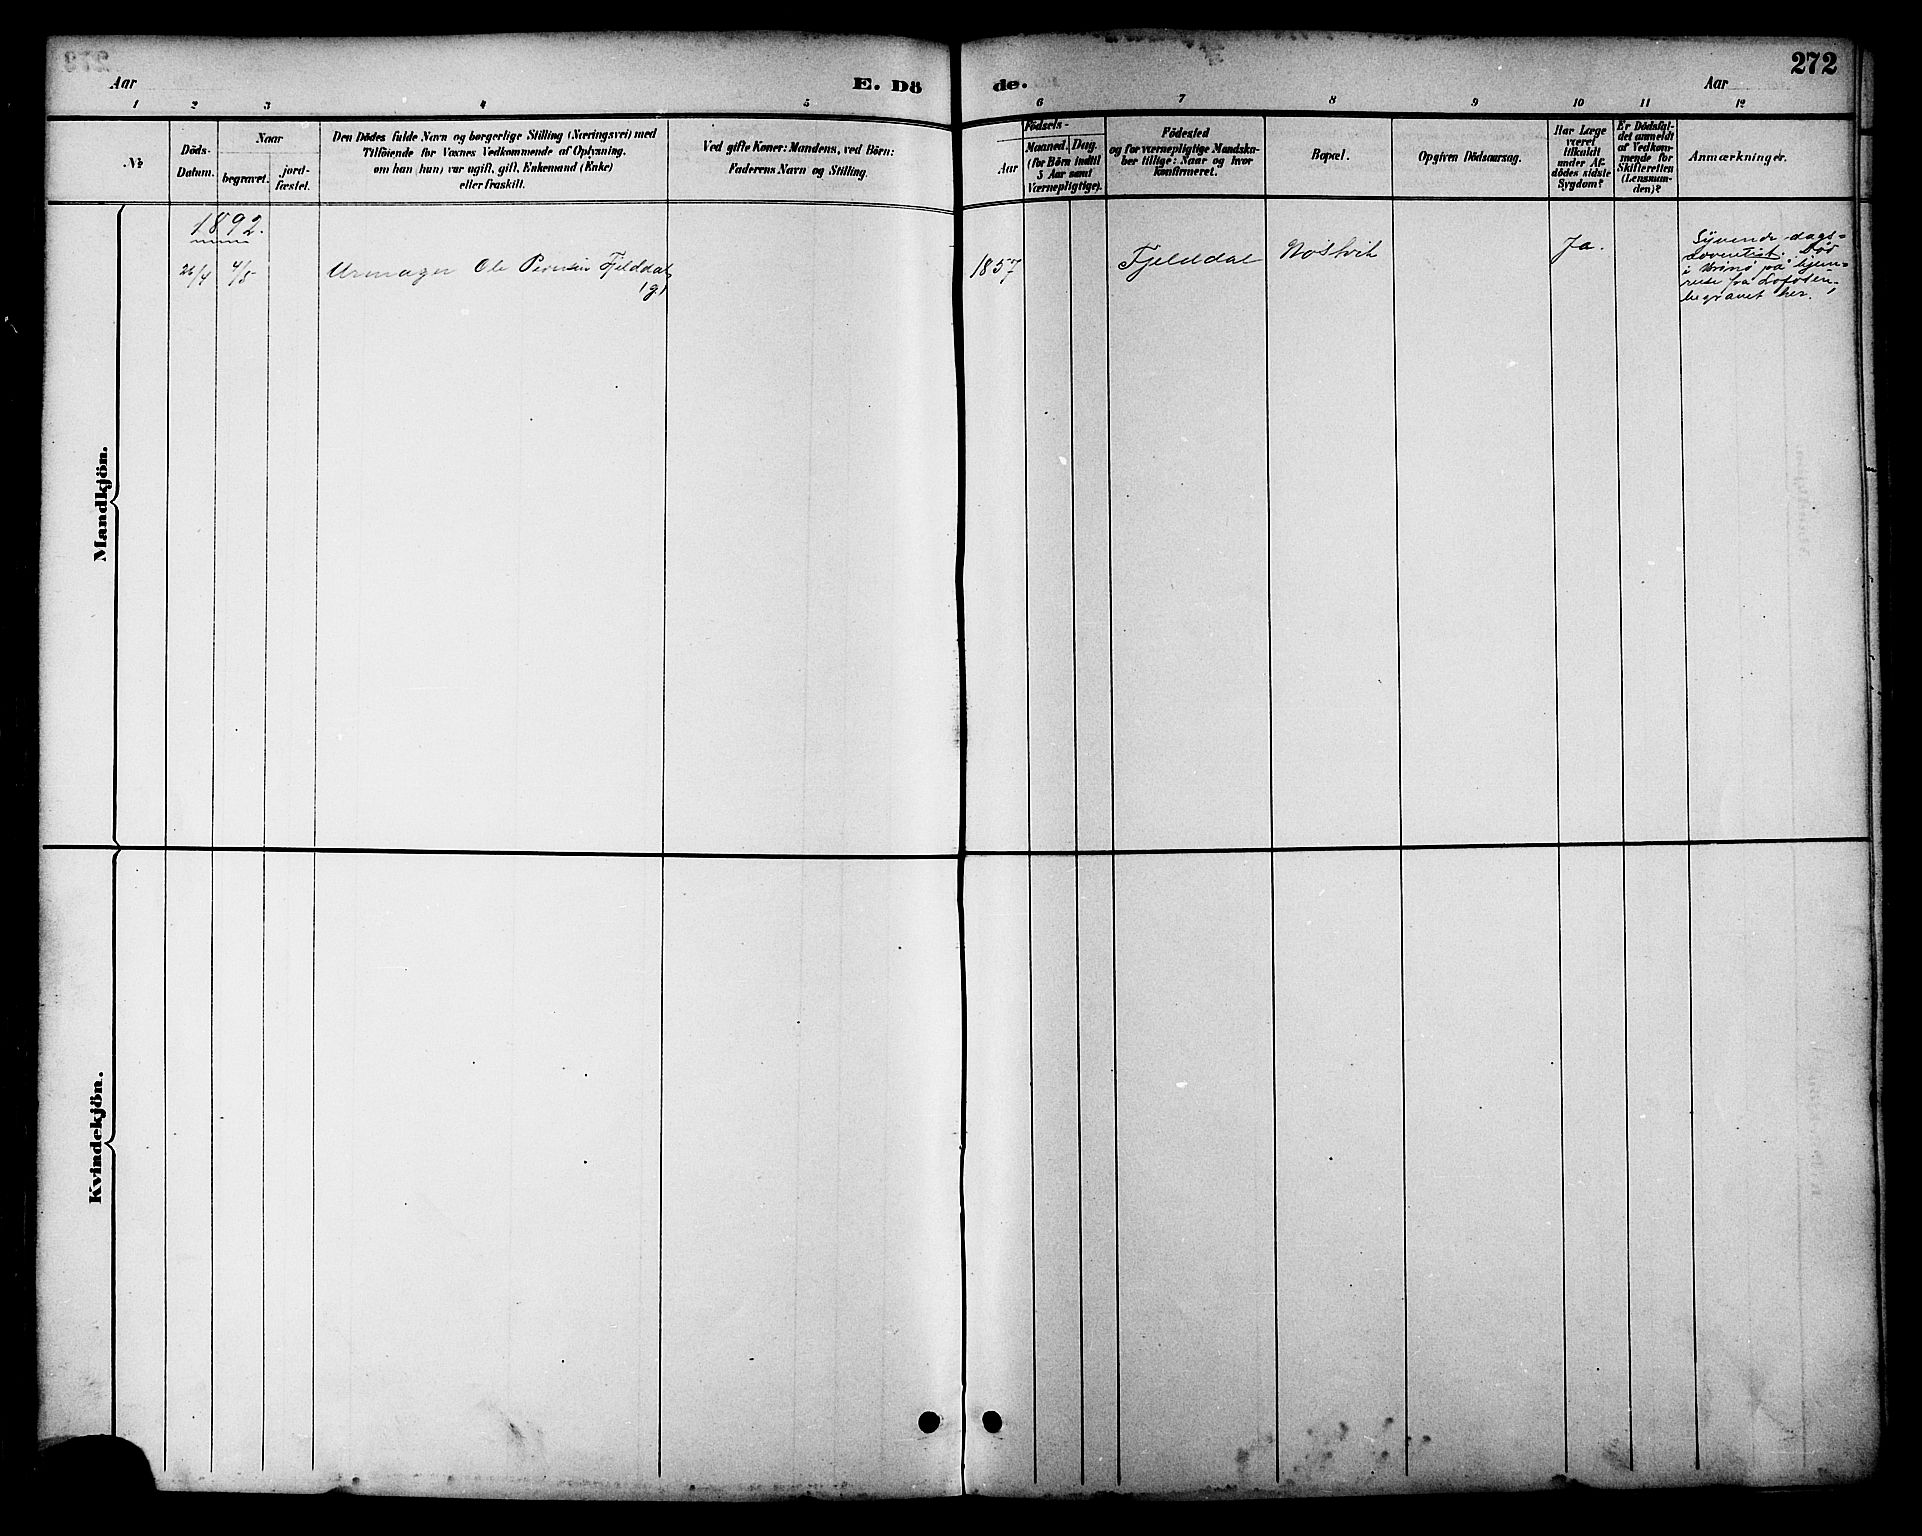 272
Aar
E. Dö
de.
Aar
1 2 3 4 5 6 7 8 9 10 11 12
No
Döds-
Datum.
Naar
begravet.
jord-
fæstet.
Den Dödes fulde Navn og borgerlige Stilling (Næringsvei) med
Tilföiende for Voxnes Vedkommende af Oplysning,
om han (hun) var ugift, gift, Enkemand (Enke)
eller fraskilt.
Ved gifte Koner: Mandens, ved Börn:
Faderens Navn og Stilling.
Födsels-
Aar
Maaned.
Dag.
(for Börn indtil
5 Aar samt
Værnepligtige).
Födested
og for værnepligtige Mandska-
ber tillige: Naar og hvor
konfirmeret.
Bopæl.
Opgiven Dödsaarsag.
Har Læge
været
tilkaldt
under Af-
dödes sidste
Sygdom?
Er Dödsfal-
det anmeldt
af Vedkom-
mende for
Skifteretten
(Lensman-
den)?
Anmærkninger.
Mandkjön.
1892.
26/4 4/5 Urmager Ole Fjelddal
(g)
1857 Fjelddal Ja.
Syvende-dags-
Död
i på hjem-
reise fra Lofoten,
begravet her.
Kvindekjön.